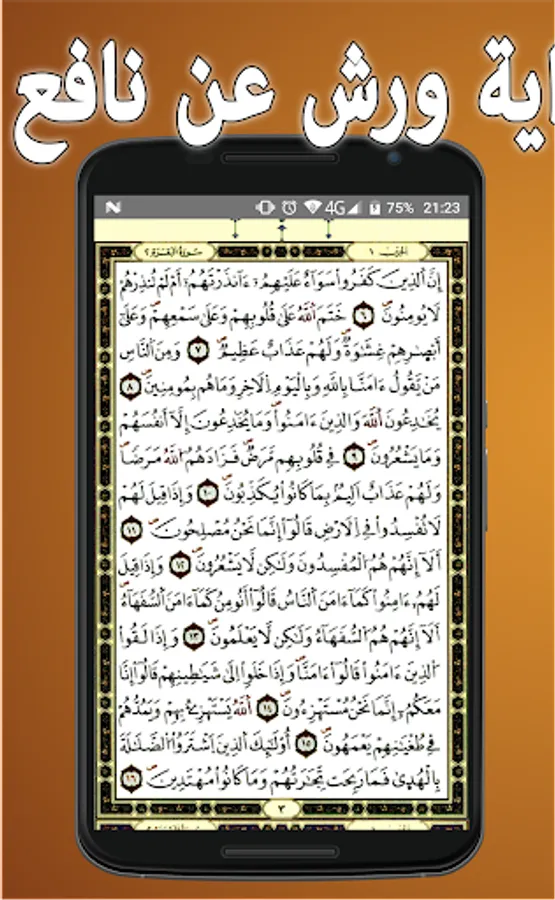 اية ورش عن نافع
4G 75% 21:23
الحزب ١ سورة البقرة ٢
إِنَّ اَ۬لذِينَ كَفَرُواْ سَوَآءٌ عَلَيْهِمُۥٓ ءَآنذَرْتَهُمُۥٓ أَمْ لَمْ تُنذِرْهُمْ
لَا يُومِنُونَ ٦ خَتَمَ اَ۬للَّهُ عَلَىٰ قُلُوبِهِمْ وَعَلَىٰ سَمْعِهِمْ وَعَلَىٰٓ
أَبْصٰ۪رِهِمْ غِشَٰوَةٌ وَلَهُمْ عَذَابٌ عَظِيمٌ ٧ وَمِنَ اَ۬لنَّاسِ
مَنْ يَّقُولُ ءَامَنَّا بِاللَّهِ وَبِالْيَوْمِ اِ۬لَاخِرِ وَمَا هُم بِمُومِنِينَ ٨
يُخَٰدِعُونَ اَ۬للَّهَ وَالذِينَ ءَامَنُواْ وَمَا يُخَٰدِعُونَ إِلَّآ أَنفُسَهُمْ
وَمَا يَشْعُرُونَ ٩ فِے قُلُوبِهِم مَّرَضٌ فَزَادَهُمُ اُ۬للَّهُ مَرَضاً
وَلَهُمْ عَذَابٌ اَلِيمٌۢ بِمَا كَانُواْ يُكَذِّبُونَ ١٠ وَإِذَا قِيلَ لَهُمْ
لَا تُفْسِدُواْ فِے اِ۬لَارْضِ قَالُوٓاْ إِنَّمَا نَحْنُ مُصْلِحُونَ ١١
أَلَآ إِنَّهُمْ هُمُ اُ۬لْمُفْسِدُونَ وَلَٰكِن لَّا يَشْعُرُونَ ١٢ وَإِذَا قِيلَ
لَهُمُۥٓ ءَامِنُواْ كَمَآ ءَامَنَ اَ۬لنَّاسُ قَالُوٓاْ أَنُومِنُ كَمَآ ءَامَنَ اَ۬لسُّفَهَآءُ
أَلَآ إِنَّهُمْ هُمُ اُ۬لسُّفَهَآءُ وَلَٰكِن لَّا يَعْلَمُونَ ١٣ وَإِذَا لَقُواْ
اُ۬لذِينَ ءَامَنُواْ قَالُوٓاْ ءَامَنَّا وَإِذَا خَلَوِاْ اِلَىٰ شَيَٰطِينِهِمْ قَالُوٓاْ إِنَّا
مَعَكُمُۥٓ إِنَّمَا نَحْنُ مُسْتَهْزِءُونَ ١٤ اَ۬للَّهُ يَسْتَهْزِۓُ بِهِمْ وَيَمُدُّهُمْ
فِے طُغْيَٰنِهِمْ يَعْمَهُونَ ١٥ أُوْلَٰٓئِكَ اَ۬لذِينَ اَ۪شْتَرَوُاْ اُ۬لضَّلَٰلَةَ
بِالْهُد۪ىٰ فَمَا رَبِحَت تِّجَٰرَتُهُمْ وَمَا كَانُواْ مُهْتَدِينَ ١٦
٣